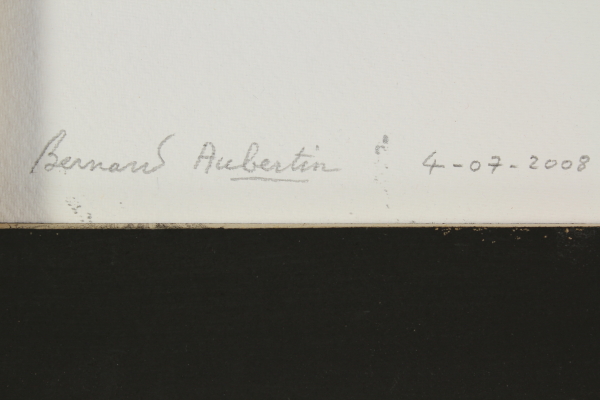 Bernard Aubertin 4-07-2008